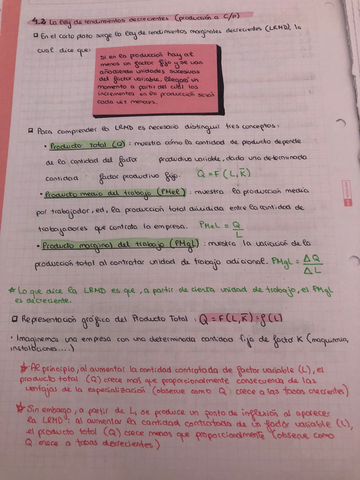 4.2 La Ley de rendimientos decrecientes (producción a C/p)
En el corto plazo surge la Ley de rendimientos marginales decrecientes (LRMD), la
cual dice que:
Si en la producción hay al
menos un factor fijo y se van
añadiendo unidades sucesivas
del factor variable, llegará un
momento a partir del cual los
incrementos en la producción serán
cada vez menores.
Para comprender la LRMD es necesario distinguir tres conceptos:
• Producto Total (Q): muestra cómo la cantidad de producto depende
de la cantidad del factor productivo variable, dada una determinada
cantidad factor productivo fijo. Q = F(L, K̄)
• Producto medio del trabajo (PMeL): muestra la producción media
por trabajador, ed, la producción total dividida entre la cantidad de
trabajadores que contrata la empresa. PMeL = Q/L
• Producto marginal del trabajo (PMgL): muestra la variación de la
producción total al contratar unidad de trabajo adicional. PMgL = ΔQ/ΔL
☆ Lo que dice la LRMD es que, a partir de cierta unidad de trabajo, el PMgL
es decreciente.
Representación gráfica del Producto Total: Q = F(L, K̄) = f(L)
• Imaginemos una empresa con una determinada cantidad fija de factor K (maquinaria,
instalaciones....)
☆ Al principio, al aumentar la cantidad contratada de factor variable (L), el
producto total (Q) crece más que proporcionalmente consecuencia de las
ventajas de la especialización (observe como Q crece a las tasas crecientes)
☆ Sin embargo, a partir de L₁ se produce un punto de inflexión al aparecer
la LRMD: al aumentar la cantidad contratada de un factor variable (L),
el producto total (Q) crece menos que proporcionalmente (observe como
Q crece a tasas decrecientes)